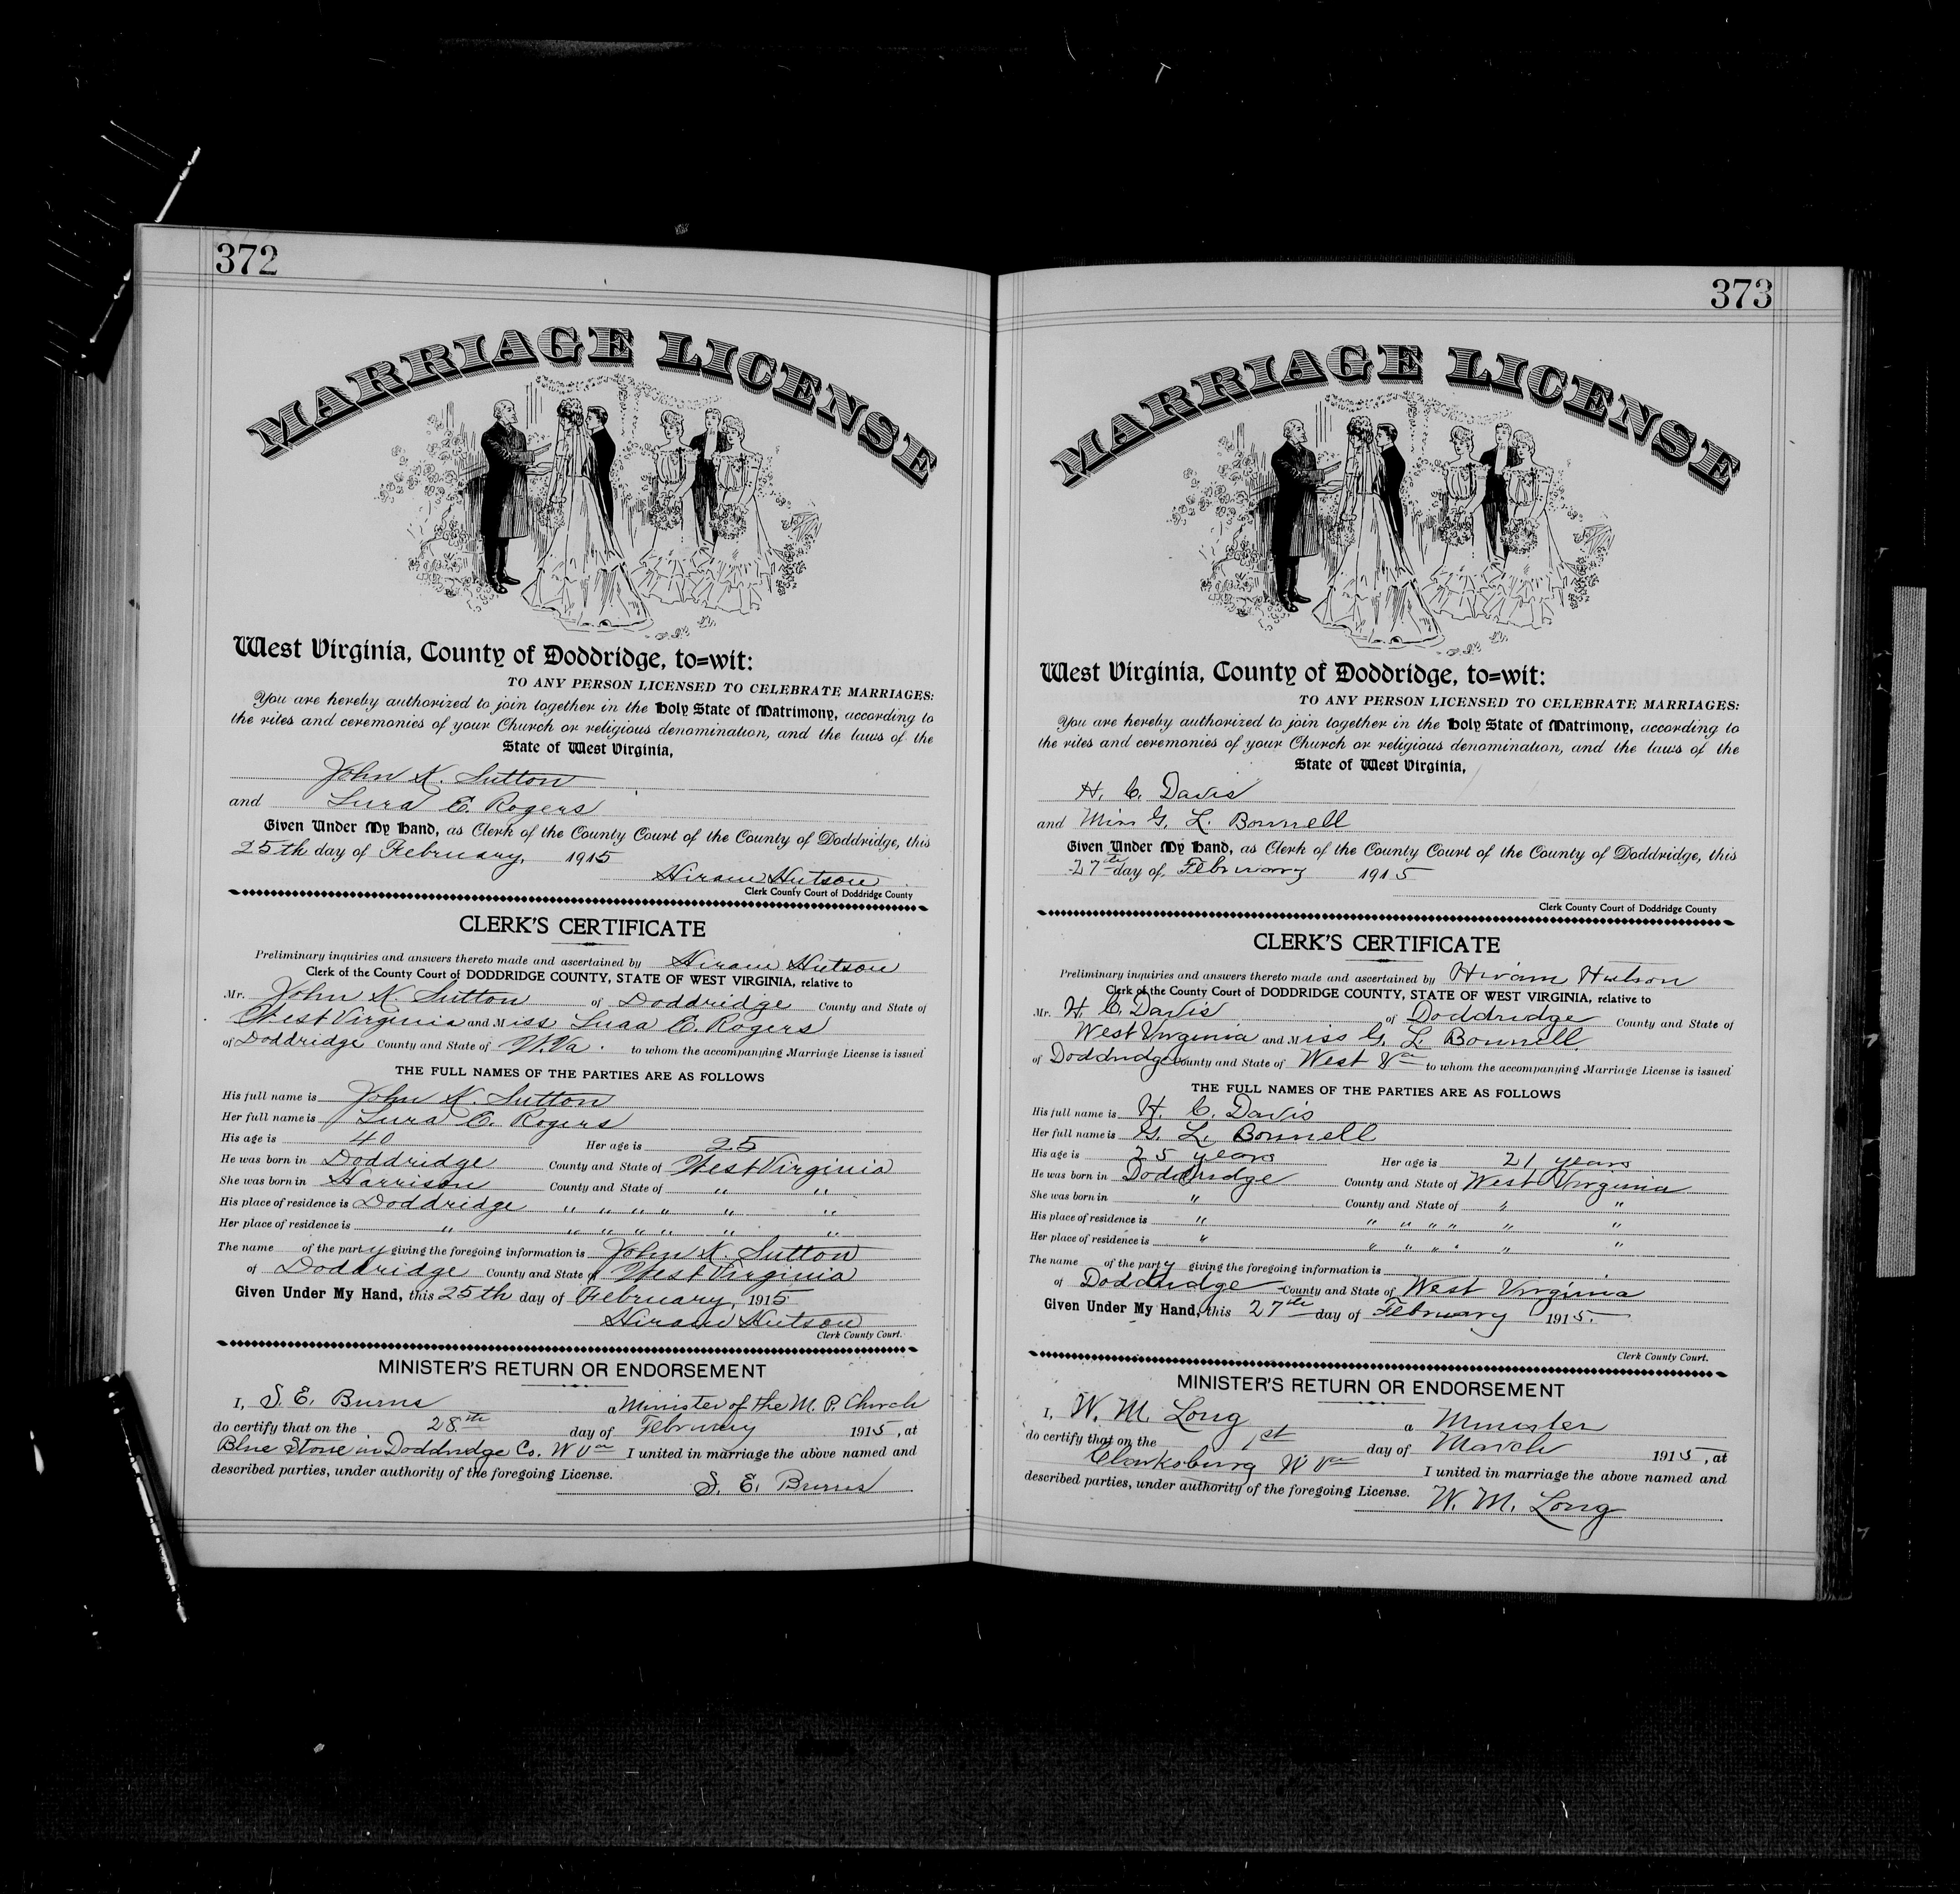 372
MARRIAGE LICENSE
West Virginia, County of Doddridge, to=wit:
TO ANY PERSON LICENSED TO CELEBRATE MARRIAGES:
You are hereby authorized to join together in the Holy State of Matrimony, according to
the rites and ceremonies of your Church or religious denomination, and the laws of the
State of West Virginia,
John K. Sutton
and Lura E. Rogers
Given Under My Hand, as Clerk of the County Court of the County of Doddridge, this
25th day of February, 1915
Hiram Hutson
Clerk County Court of Doddridge County
CLERK'S CERTIFICATE
Preliminary inquiries and answers thereto made and ascertained by Hiram Hutson
Clerk of the County Court of DODDRIDGE COUNTY, STATE OF WEST VIRGINIA, relative to
Mr. John K. Sutton of Doddridge County and State of
West Virginia and Miss Luaa E. Rogers
of Doddridge County and State of W.Va. to whom the accompanying Marriage License is issued
THE FULL NAMES OF THE PARTIES ARE AS FOLLOWS
His full name is John K. Sutton
Her full name is Lura E. Rogers
His age is 40 Her age is 25
He was born in Doddridge County and State of West Virginia
She was born in Harrison County and State of " "
His place of residence is Doddridge " " " " " "
Her place of residence is " " " " " " "
The name of the party giving the foregoing information is John K. Sutton
of Doddridge County and State of West Virginia
Given Under My Hand, this 25th day of February, 1915
Hiram Hutson
Clerk County Court.
MINISTER'S RETURN OR ENDORSEMENT
I, S. E. Burns a Minister of the M. P. Church
do certify that on the 28th day of February 1915, at
Blue Stone in Doddridge Co. W Va I united in marriage the above named and
described parties, under authority of the foregoing License.
S. E. Burns
373
MARRIAGE LICENSE
West Virginia, County of Doddridge, to=wit:
TO ANY PERSON LICENSED TO CELEBRATE MARRIAGES:
You are hereby authorized to join together in the Holy State of Matrimony, according to
the rites and ceremonies of your Church or religious denomination, and the laws of the
State of West Virginia,
H. C. Davis
and Miss G. L. Bonnell
Given Under My Hand, as Clerk of the County Court of the County of Doddridge, this
27th day of February 1915
Clerk County Court of Doddridge County
CLERK'S CERTIFICATE
Preliminary inquiries and answers thereto made and ascertained by Hiram Hutson
Clerk of the County Court of DODDRIDGE COUNTY, STATE OF WEST VIRGINIA, relative to
Mr. H. C. Davis of Doddridge County and State of
West Virginia and Miss G. L. Bonnell
of Doddridge County and State of West Va to whom the accompanying Marriage License is issued
THE FULL NAMES OF THE PARTIES ARE AS FOLLOWS
His full name is H. C. Davis
Her full name is G. L. Bonnell
His age is 25 years Her age is 21 years
He was born in Doddridge County and State of West Virginia
She was born in " County and State of " "
His place of residence is " " " " " " "
Her place of residence is " " " " " " "
The name of the party giving the foregoing information is
of Doddridge County and State of West Virginia
Given Under My Hand, this 27th day of February 1915.
Clerk County Court.
MINISTER'S RETURN OR ENDORSEMENT
I, W. M. Long a Minister
do certify that on the 1st day of March 1915, at
Clarksburg W Va I united in marriage the above named and
described parties, under authority of the foregoing License.
W. M. Long